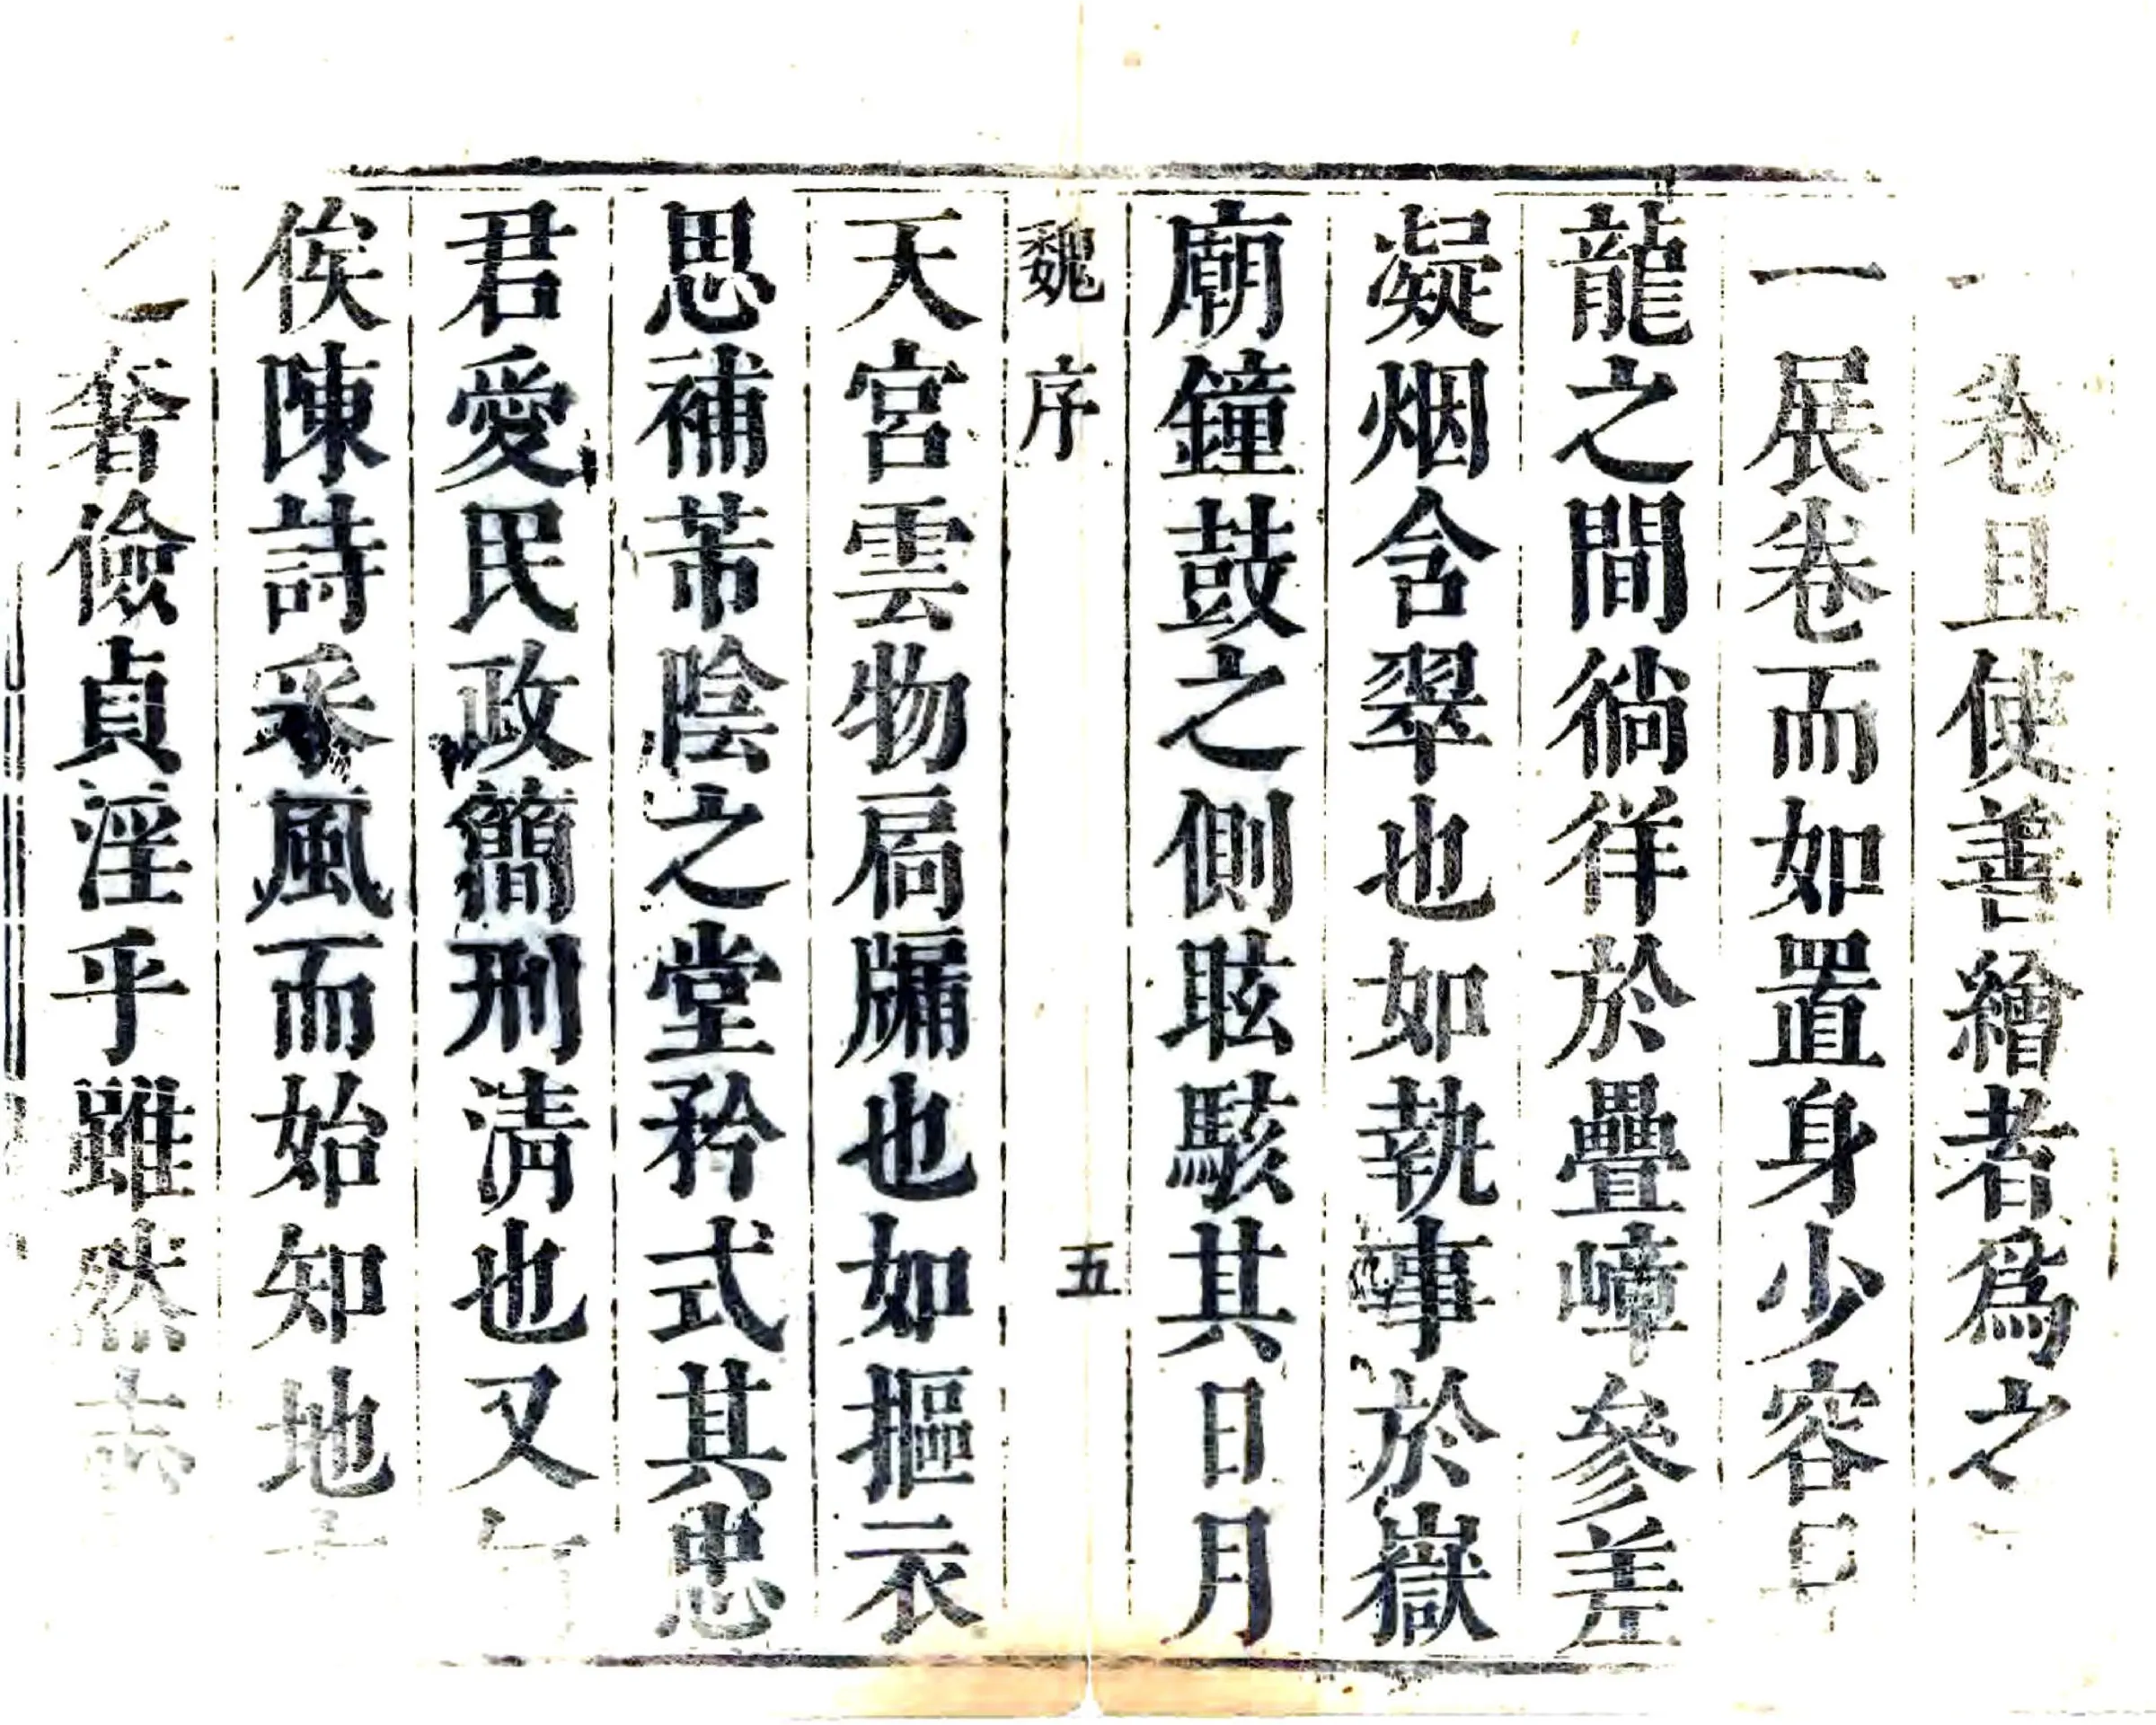 卷且使善繪者爲之
一展卷而如置身少容
龍之間徜徉於疊嶂參差
凝烟含翠也如執事於嶽
廟鐘鼓之側眩駭其日月
魏序 五
天宮雲物扃牖也如摳衣
思補芾陰之堂矜式其忠
君愛民政簡刑淸也又
俟陳詩采風而始知地
之奢儉貞淫乎雖然